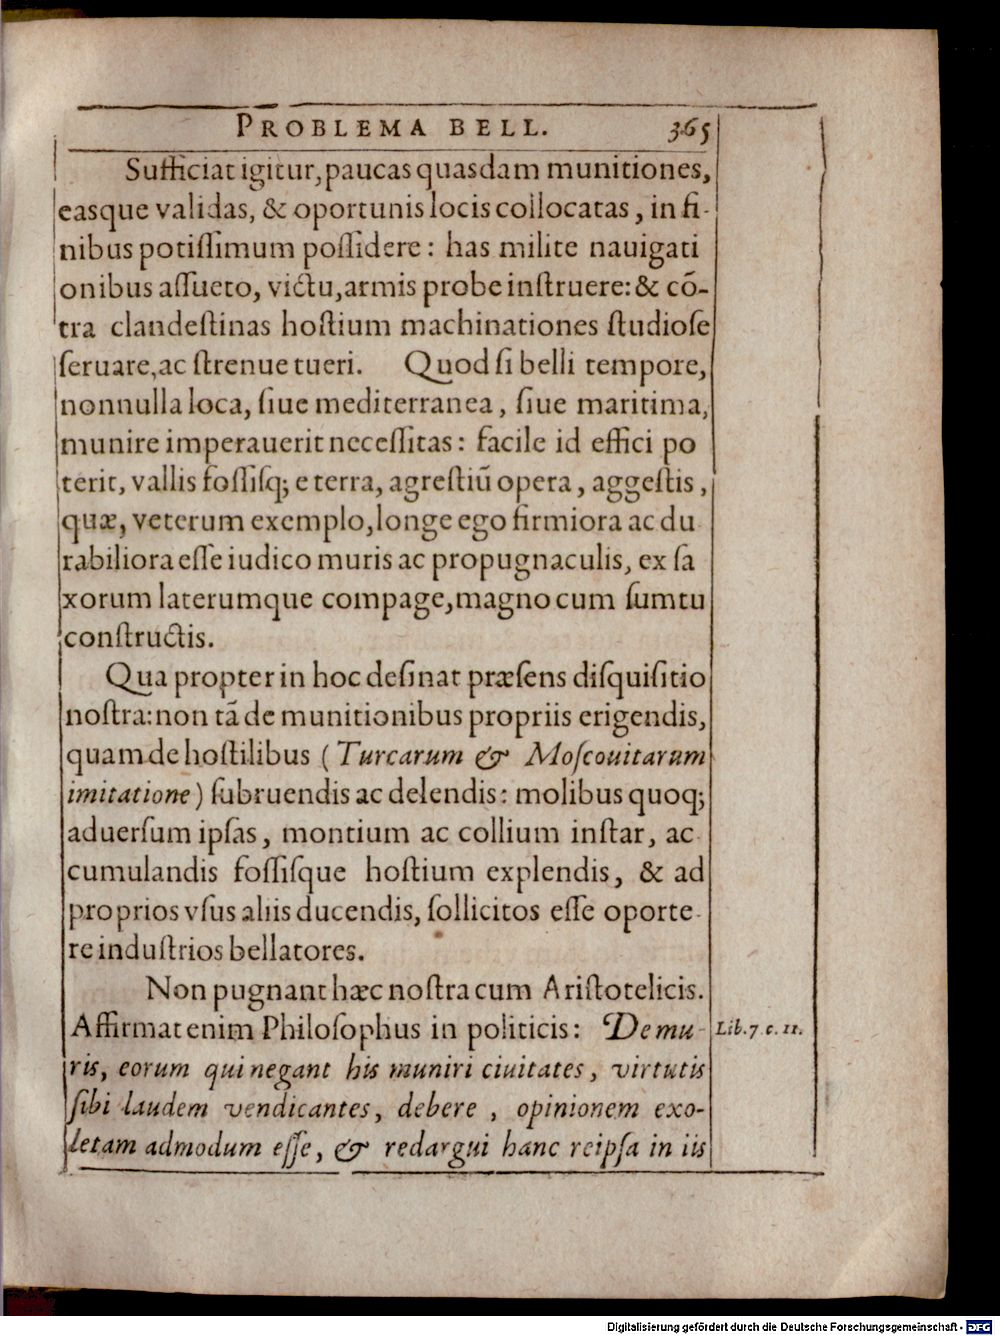 PROBLEMA BELL. 365
Sufficiat igitur, paucas quasdam munitiones,
easque validas, & oportunis locis collocatas, in fi-
nibus potiſſimum poſſidere: has milite nauigati
onibus aſſueto, victu, armis probe inſtruere: & cō-
tra clandeſtinas hoſtium machinationes ſtudioſe
ſeruare, ac ſtrenue tueri. Quod ſi belli tempore,
nonnulla loca, ſiue mediterranea, ſiue maritima,
munire imperauerit neceſſitas: facile id effici po
terit, vallis foſſiſq; e terra, agreſtiū opera, aggeſtis,
quæ, veterum exemplo, longe ego firmiora ac du
rabiliora eſſe iudico muris ac propugnaculis, ex ſa
xorum laterumque compage, magno cum ſumtu
conſtructis.
Qua propter in hoc deſinat præſens diſquiſitio
noſtra: non tā de munitionibus propriis erigendis,
quam de hoſtilibus (Turcarum & Moſcouitarum
imitatione) ſubruendis ac delendis: molibus quoq;
aduerſum ipſas, montium ac collium inſtar, ac
cumulandis foſſiſque hoſtium explendis, & ad
proprios vſus aliis ducendis, ſollicitos eſſe oporte-
re induſtrios bellatores.
Non pugnant hæc noſtra cum Ariſtotelicis.
Affirmat enim Philoſophus in politicis: De mu- Lib. 7. c. 11.
ris, eorum qui negant his muniri ciuitates, virtutis
ſibi laudem vendicantes, debere, opinionem exo-
letam admodum eſſe, & redargui hanc reipſa in iis
Digitalisierung gefördert durch die Deutsche Forschungsgemeinschaft - DFG